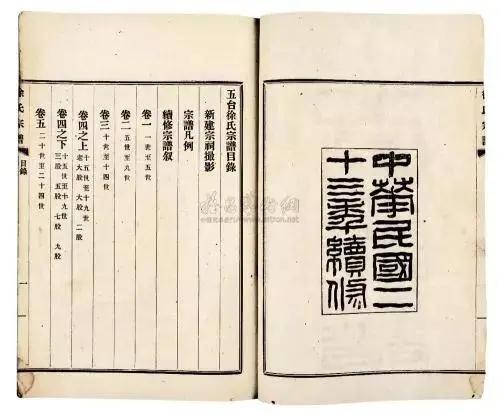 中華民國二
十三年續修
五台徐氏宗譜目錄
新建宗祠撮影
宗譜凡例
續修宗譜叙
卷一 一世至五世
卷二 五世至九世
卷三 十世至十四世
卷四之上 十五世至十九世 老大股 大股 二股
卷四之下 十五世至十九世 三股 五股 七股 九股
卷五 二十世至二十四世
徐氏宗譜 目錄 一